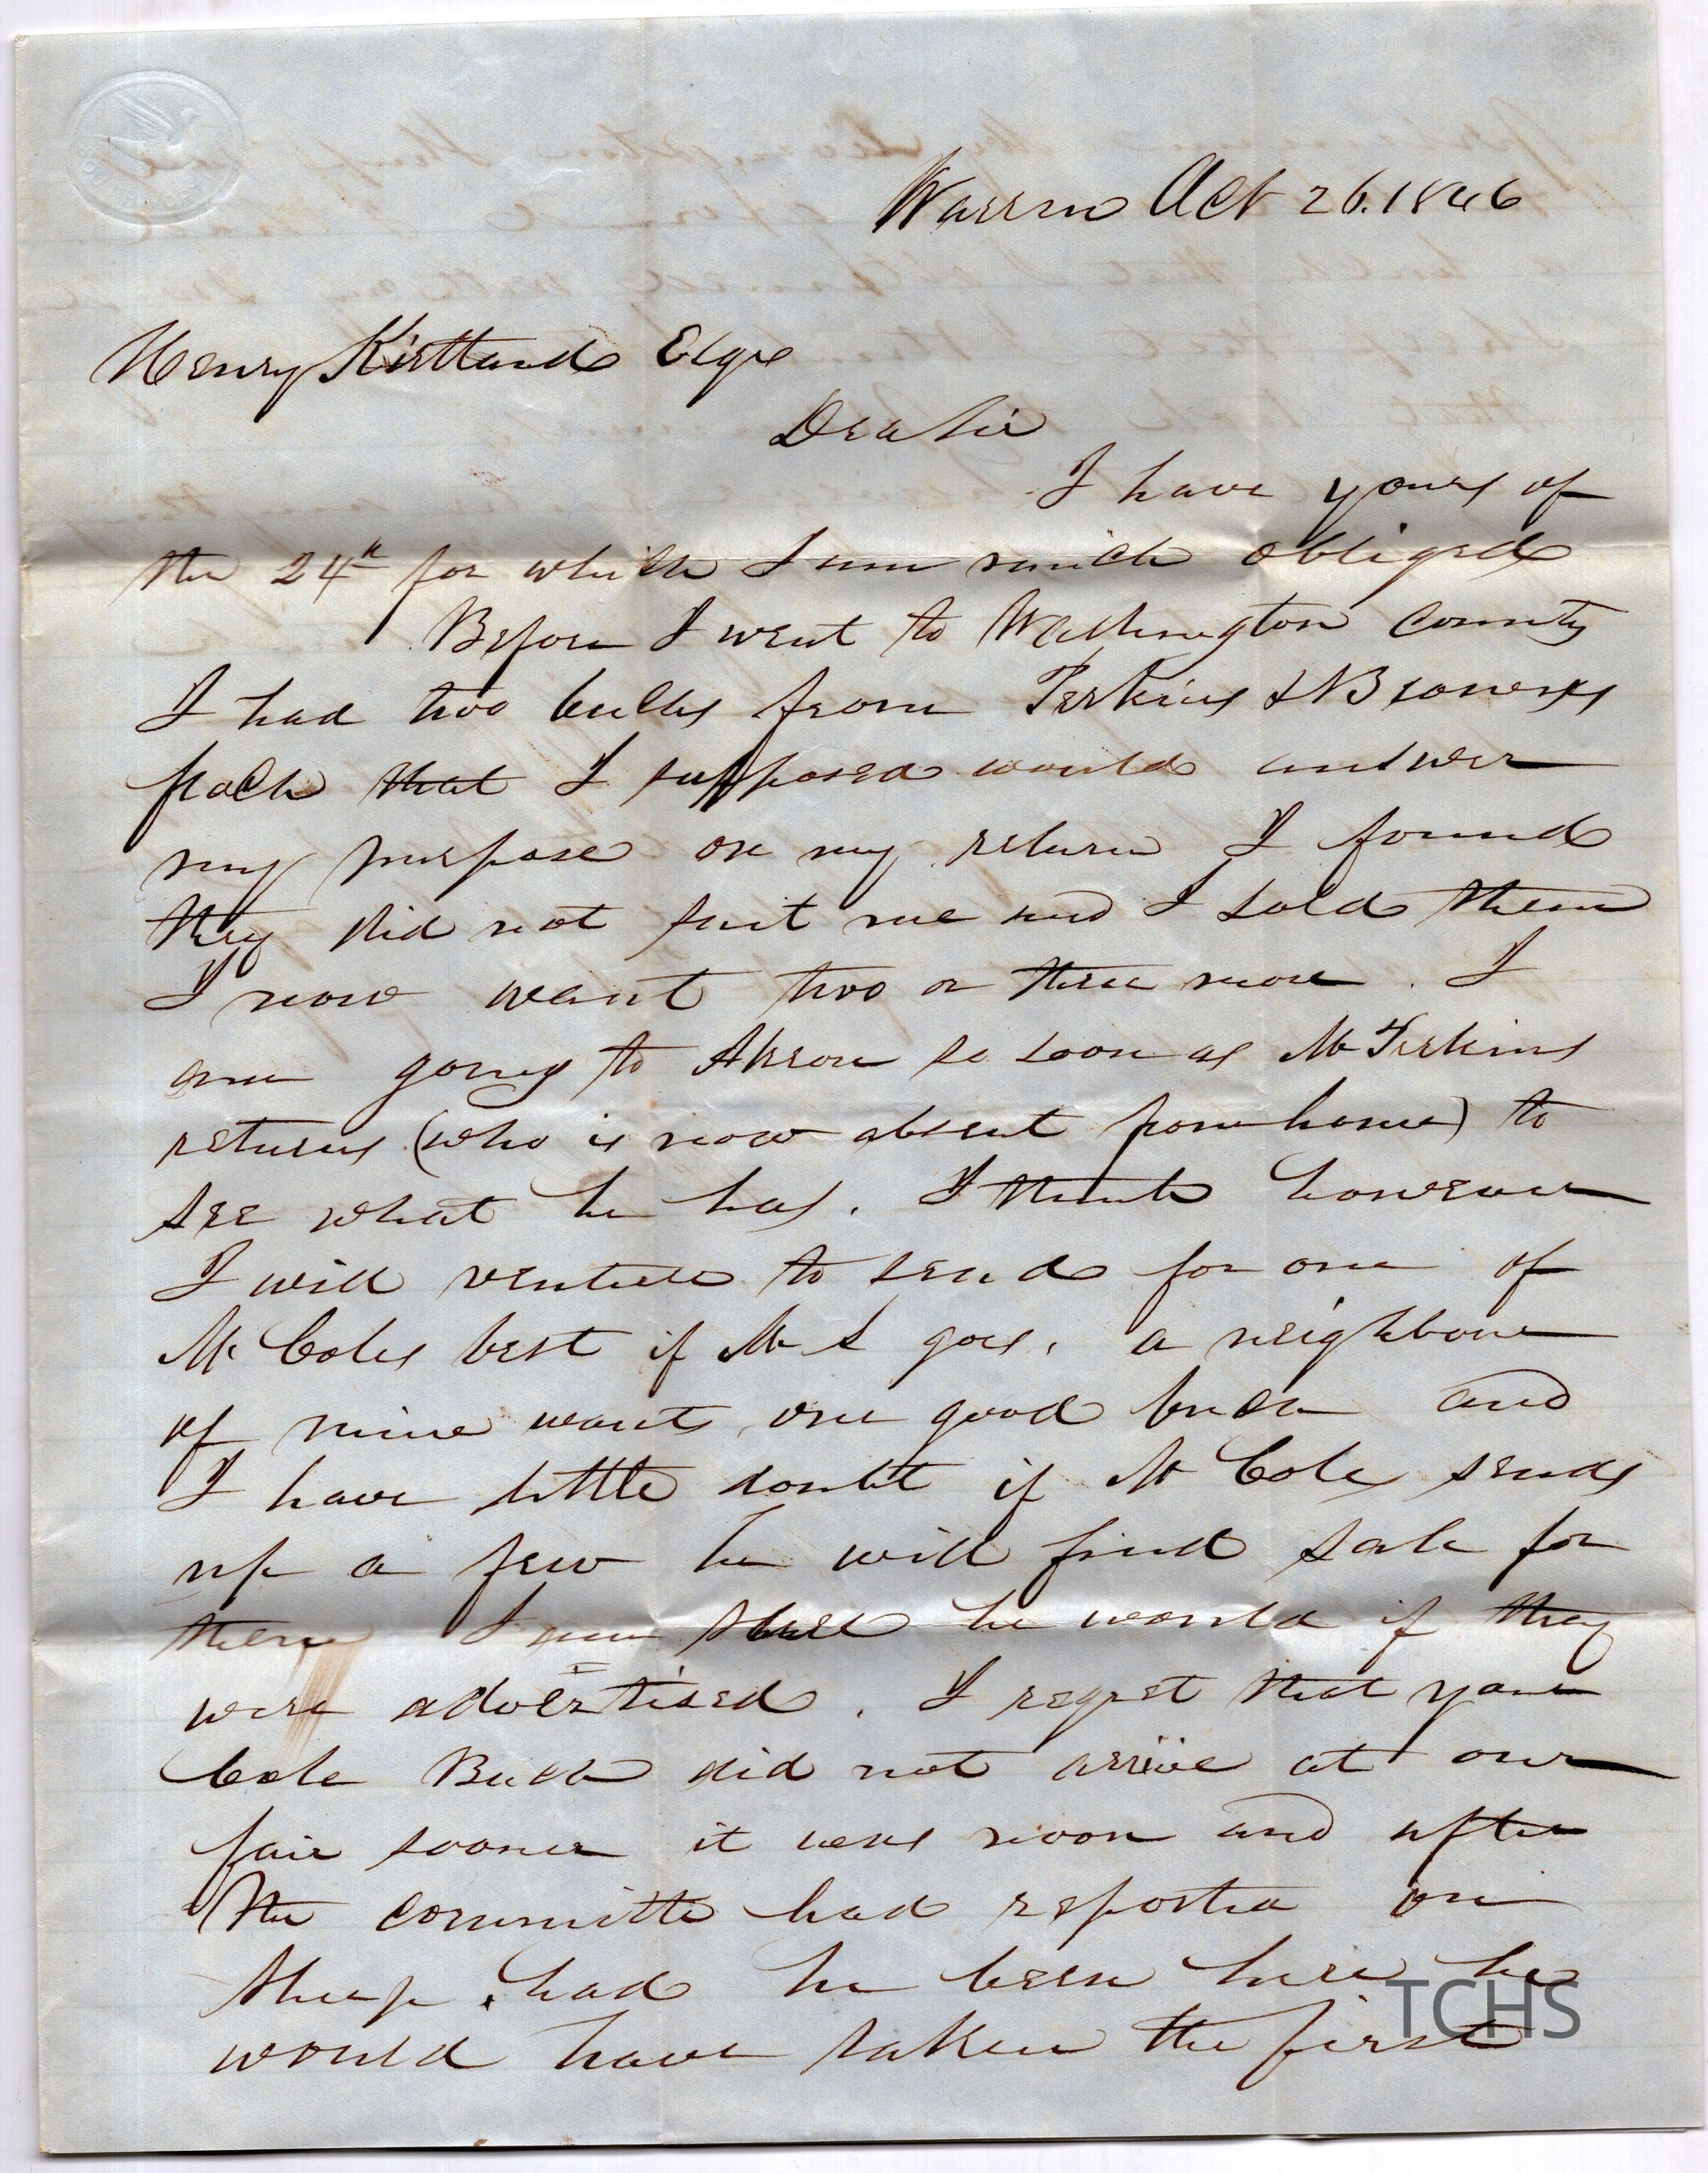 Warren Oct 26. 1846
Henry Kirtland Esqre
Dear Sir
I have yours of
the 24th for which I am much obliged
Before I went to Washington County
I had two bucks from Perkins & Browns
flock that I supposed would answer
my purpose on my return I found
they did not suit me and I sold them
I now want two or three more. I
am going to Akron so soon as Mr Perkins
returns (who is now absent from home) to
see what he has. I think however
I will venture to send for one of
Mr Coles best if Mr S goes, a neighbour
of mine wants one good buck and
I have little doubt if Mr Cole sends
up a few he will find sale for
them I am sure he would if they
were advertised. I regret that your
Cole Buck did not arrive at our
fair sooner it was noon and after
the committe had reported on
sheep. had he been here he
would have taken the first
TCHS